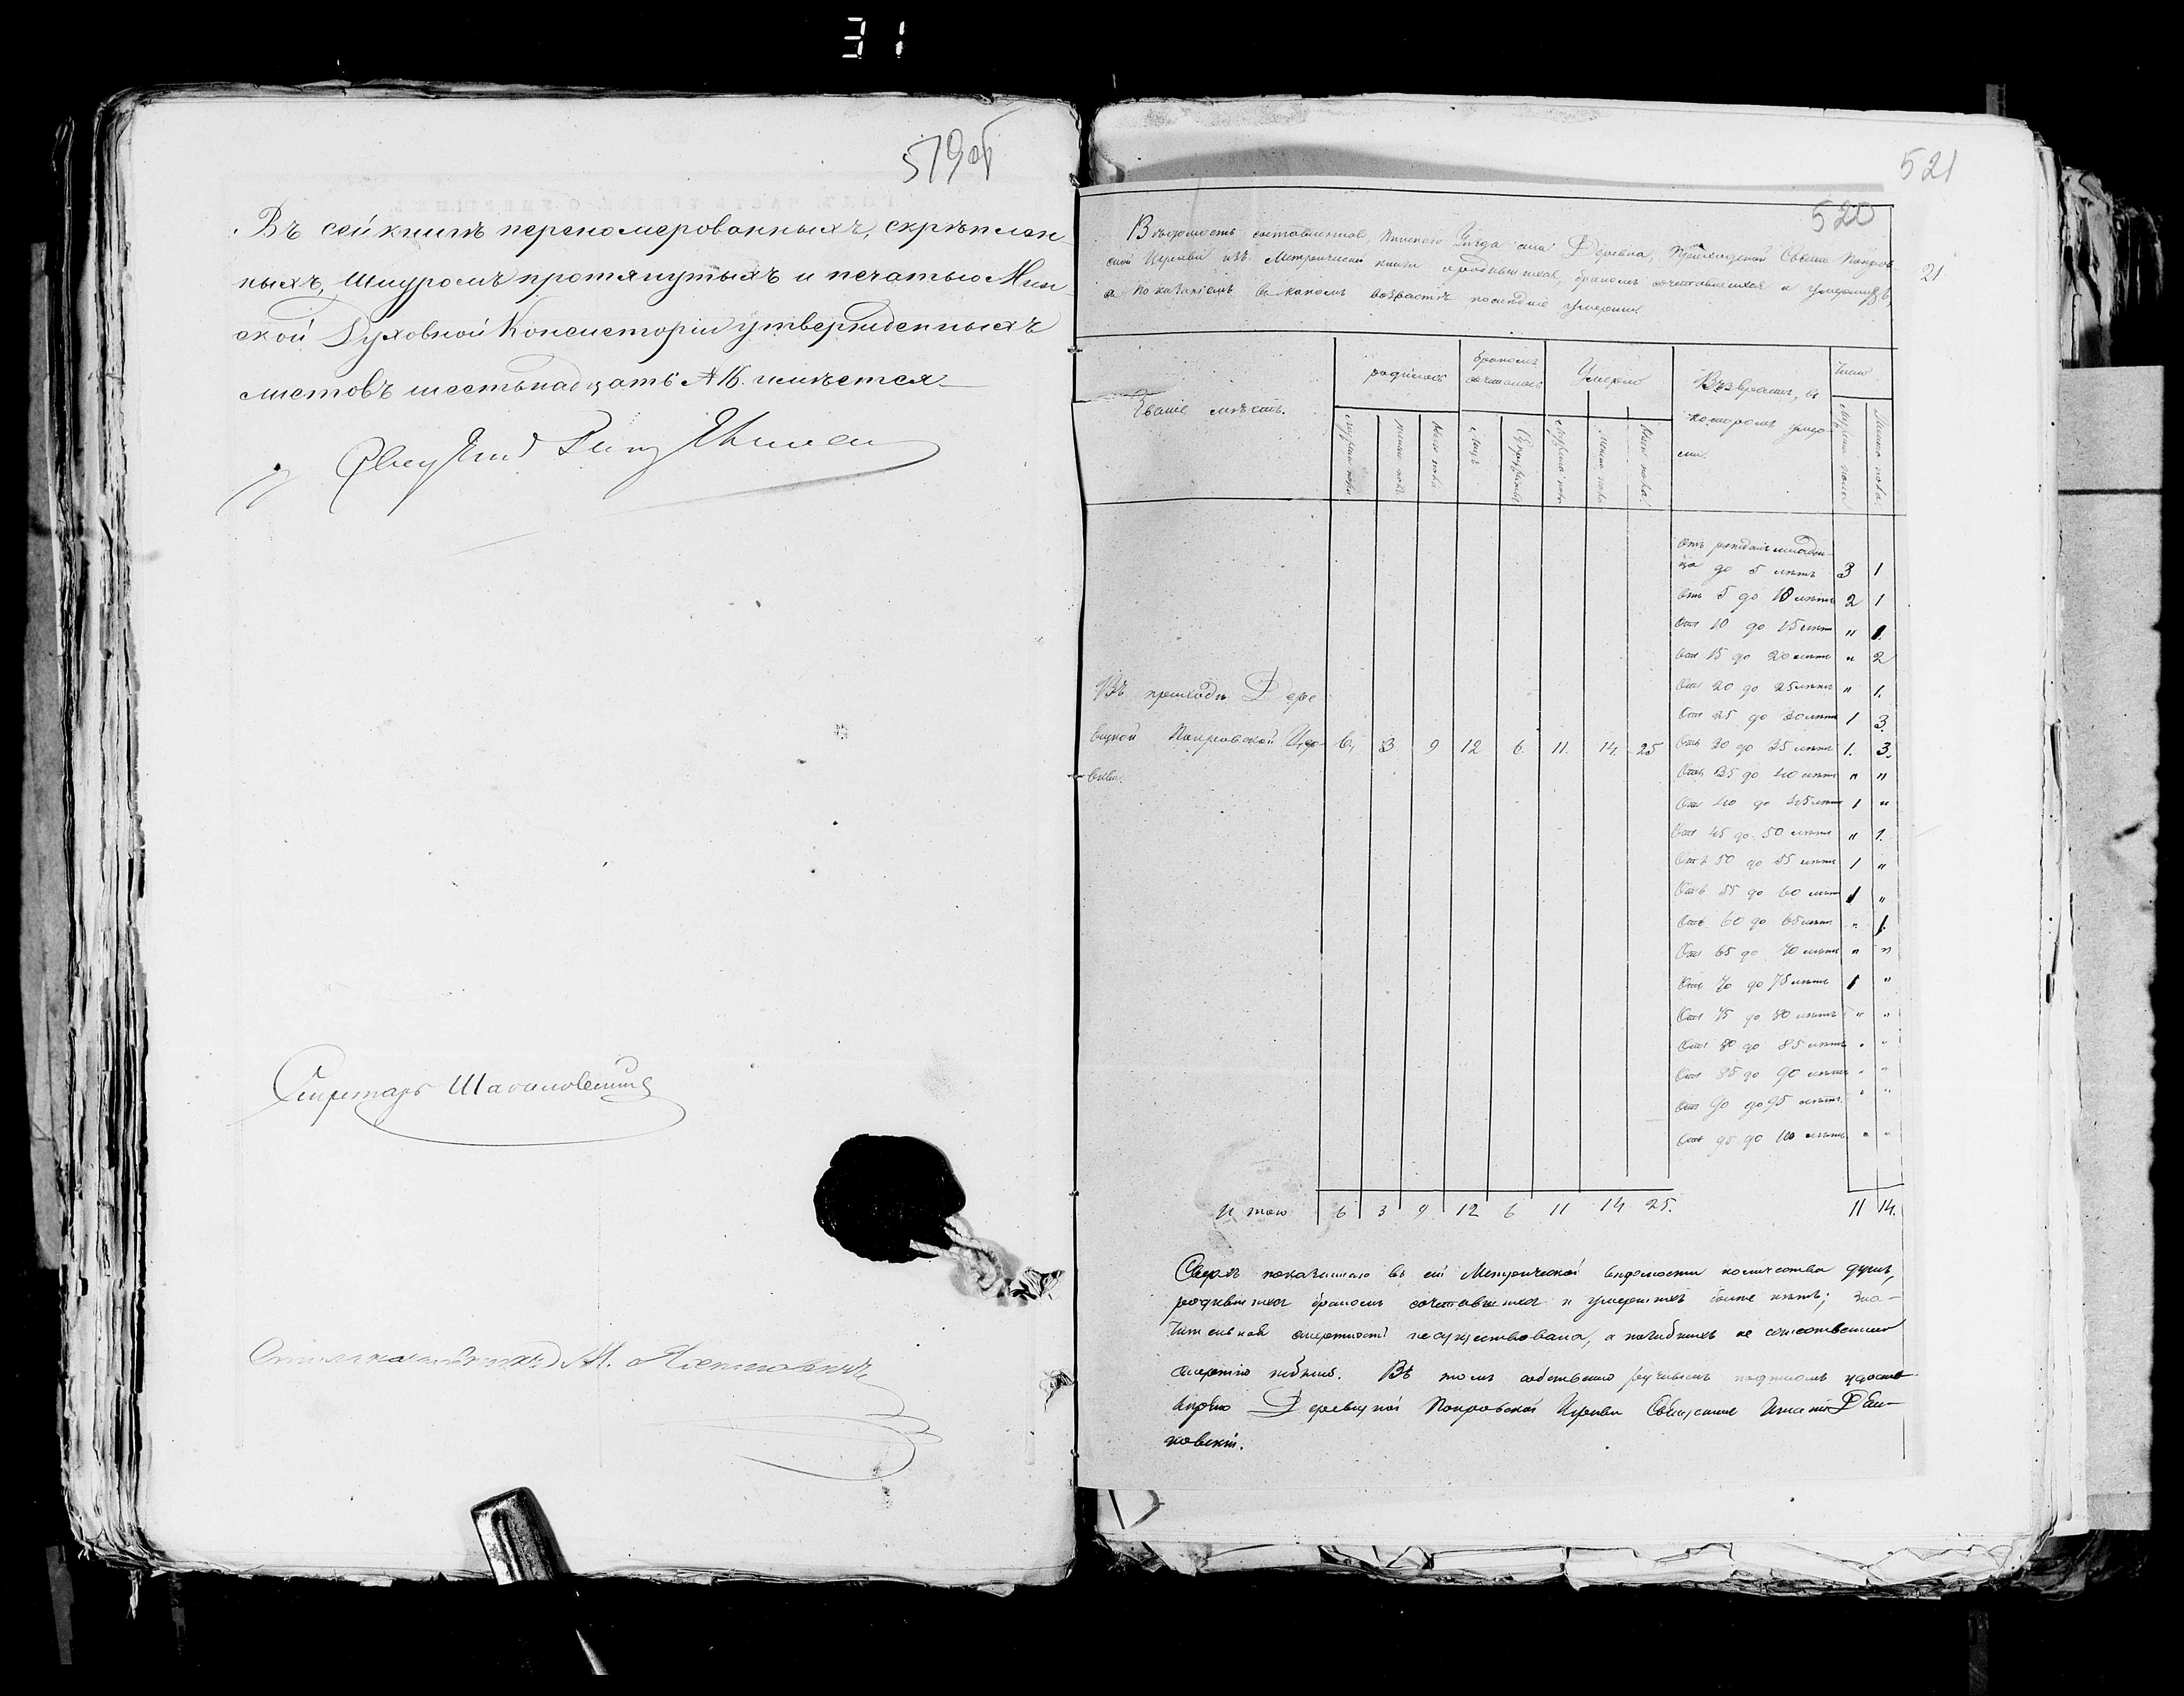 31
519об
Въ сей книгѣ перенумерованныхъ, скрѣплен-
ныхъ, шнуромъ протянутыхъ и печатью Мин-
ской Духовной Консисторіи утвержденныхъ
листовъ шестьнадцать № 16. имѣется
Секретарь
Столоначальникъ М.
521
520
21
Вѣдомость составленная, Пинскаго Уѣзда села Деревна, Приходской Свято Покров
ской Церкви изъ Метрической книги о родившихся, бракомъ сочетавшихся и умершихъ,
съ показаніемъ въ какомъ возрастѣ послѣдніе умерли
Званіе мѣстъ.
родилось
бракомъ
сочеталось
Умерло
Возврастъ, въ
которомъ умер-
ли.
Число
мужска пола
женска пола
Обоего пола
Лицъ
мужска пола
женска пола
Обоего пола
мужска пола
женска пола
Отъ рожденія младен-
ца до 5 лѣтъ 3 1
Отъ 5 до 10 лѣтъ 2 1
Отъ 10 до 15 лѣтъ " 1.
Отъ 15 до 20 лѣтъ " 2
Отъ 20 до 25 лѣтъ " 1.
Отъ 25 до 30 лѣтъ 1 3.
Въ приходѣ Дере
вцкой Покровской Цер-
кви.
6, 3 9 12 6. 11. 14. 25
Отъ 30 до 35 лѣтъ 1. 3.
Отъ 35 до 40 лѣтъ " "
Отъ 40 до 45 лѣтъ 1 "
Отъ 45 до 50 лѣтъ " 1.
Отъ 50 до 55 лѣтъ 1 "
Отъ 55 до 60 лѣтъ 1 "
Отъ 60 до 65 лѣтъ " 1.
Отъ 65 до 70 лѣтъ " "
Отъ 70 до 75 лѣтъ 1 "
Отъ 75 до 80 лѣтъ " "
Отъ 80 до 85 лѣтъ " "
Отъ 85 до 90 лѣтъ " "
Отъ 90 до 95 лѣтъ " "
Отъ 95 до 100 лѣтъ " "
И того 6 3 9 12 6 11 14 25. 11 14.
Сверхъ показаннаго въ сей Метрической вѣдомости количества душъ,
родившихся бракомъ сочетавшихся и умершихъ болѣе нѣтъ; зна-
чительная смертность не существовала, а погибшихъ не естественною
смертію небыло. Въ томъ собственно ручнымъ подписомъ удосто-
вѣряю Деревцкой Покровской Церкви Священникъ